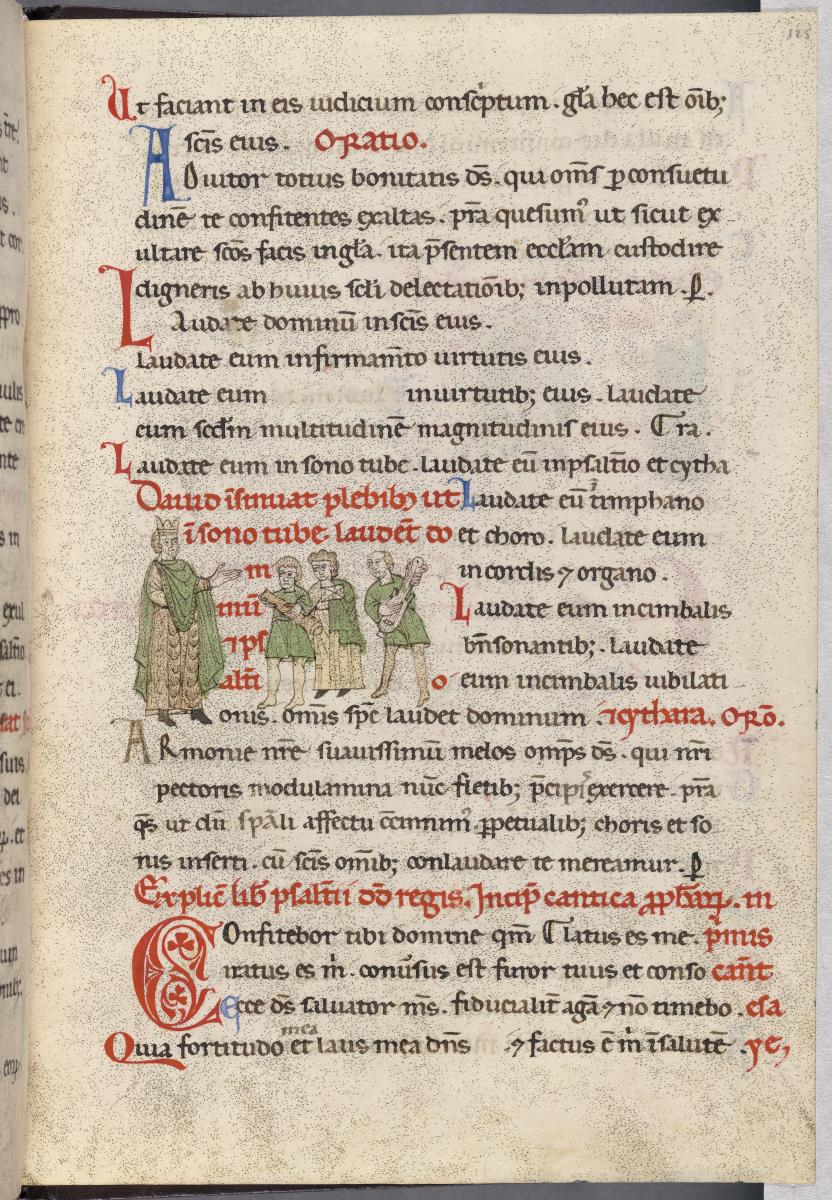 125
Ut faciant in eis iudicium conscͥptum . gl̄a hec est oīb;
scīs eius . Oratio.
Adiutor totius bonitatis d̄s . qui om̄s ꝑ consuetu
dinē te confitentes exaltas . p̄ra quesumꝰ ut sicut ex
ultare sc̄os facis in gl̄a . ita p̄sentem eccl̄am custodire
digneris ab huius sc̄li delectatiōib; inpollutam . ꝑ.
Laudate dominū in scīs eius .
laudate eum in firmam̄to uirtutis eius .
Laudate eum in uirtutib; eius . laudate
eum sc̄dm multitudinē magnitudinis eius . Tra .
Laudate eum in sono tube . laudate eū in psalt̄io et cytha
Dauid īsinuat plebibȝ ut Laudate eū ī timphano
ī sono tube laudēt do et choro . laudate eum
m in cordis ⁊ organo .
inū Laudate eum in cimbalis
⁊ ps bn̄sonantib; . laudate
alt̄i o eum in cimbalis iubilati
onis . omīs sp̄c laudet dominum . ⁊ cythara . Orō.
ARmonie nr̄e suauissimū melos omp̄s d̄s . qui nr̄i
pectoris modulamina nūc fletib; p̄cipꝭ exercere . p̄ra
q̄s ut dū sp̄āli affectu c̄cinimꝰ ꝑpetualib; choris et so
nis inserti . cū scīs omīb; conlaudare te mereamur . ꝑ
Explic̄ lib̄ psalt̄ii d̄d regis . Incip̄ cantica ꝓph̄aꝝ . in
Confitebor tibi domine qm̄ Tiatus es me . p̄mus
iratus es m̍ . conu̍sus est furor tuus et conso cant̄
Ecce d̄s saluator m̄s . fiducialit̄ agā ⁊ nō timebo . esa
mea
Quia fortitudo et laus mea dn̄s ⁊ factus ē m̍ ī salutē . ye,